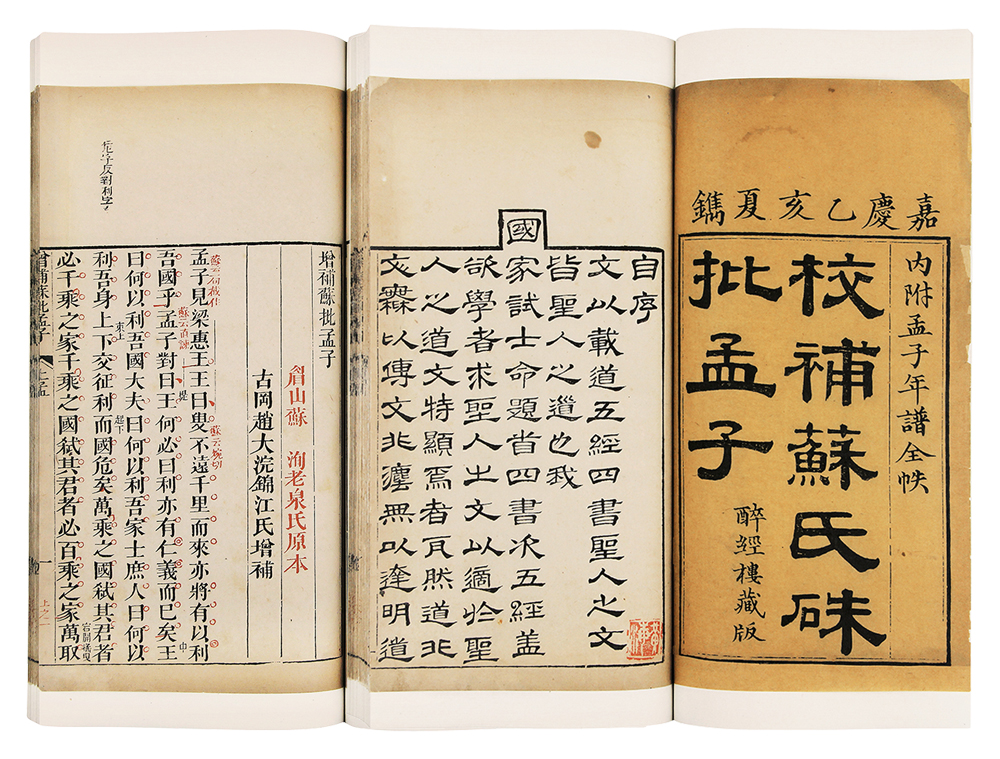 嘉慶乙亥夏鐫
内附孟子年譜全帙
校補蘇氏硃
批孟子
醉經樓藏版
自序
文以載道五經四書聖人之文
皆聖人之道也我
國
家試士命題首四書次五經蓋
欲學者求聖人之文以適於聖
人之道文特顯焉者耳然道非
文無以傳文非灋無以達明道
增補蘇批孟子
眉山蘇 洵老泉氏原本
古岡趙大浣錦江氏增補
孟子見梁惠王王曰叟不遠千里而來亦將有以利
吾國乎孟子對曰王何必曰利亦有仁義而已矣王
曰何以利吾國大夫曰何以利吾家士庶人曰何以
利吾身上下交征利而國危矣萬乘之國弑其君者
必千乘之家千乘之國弑其君者必百乘之家萬取
反對利字
蘇云婉切
提
束上
起下
增補蘇批孟子
上孟
一